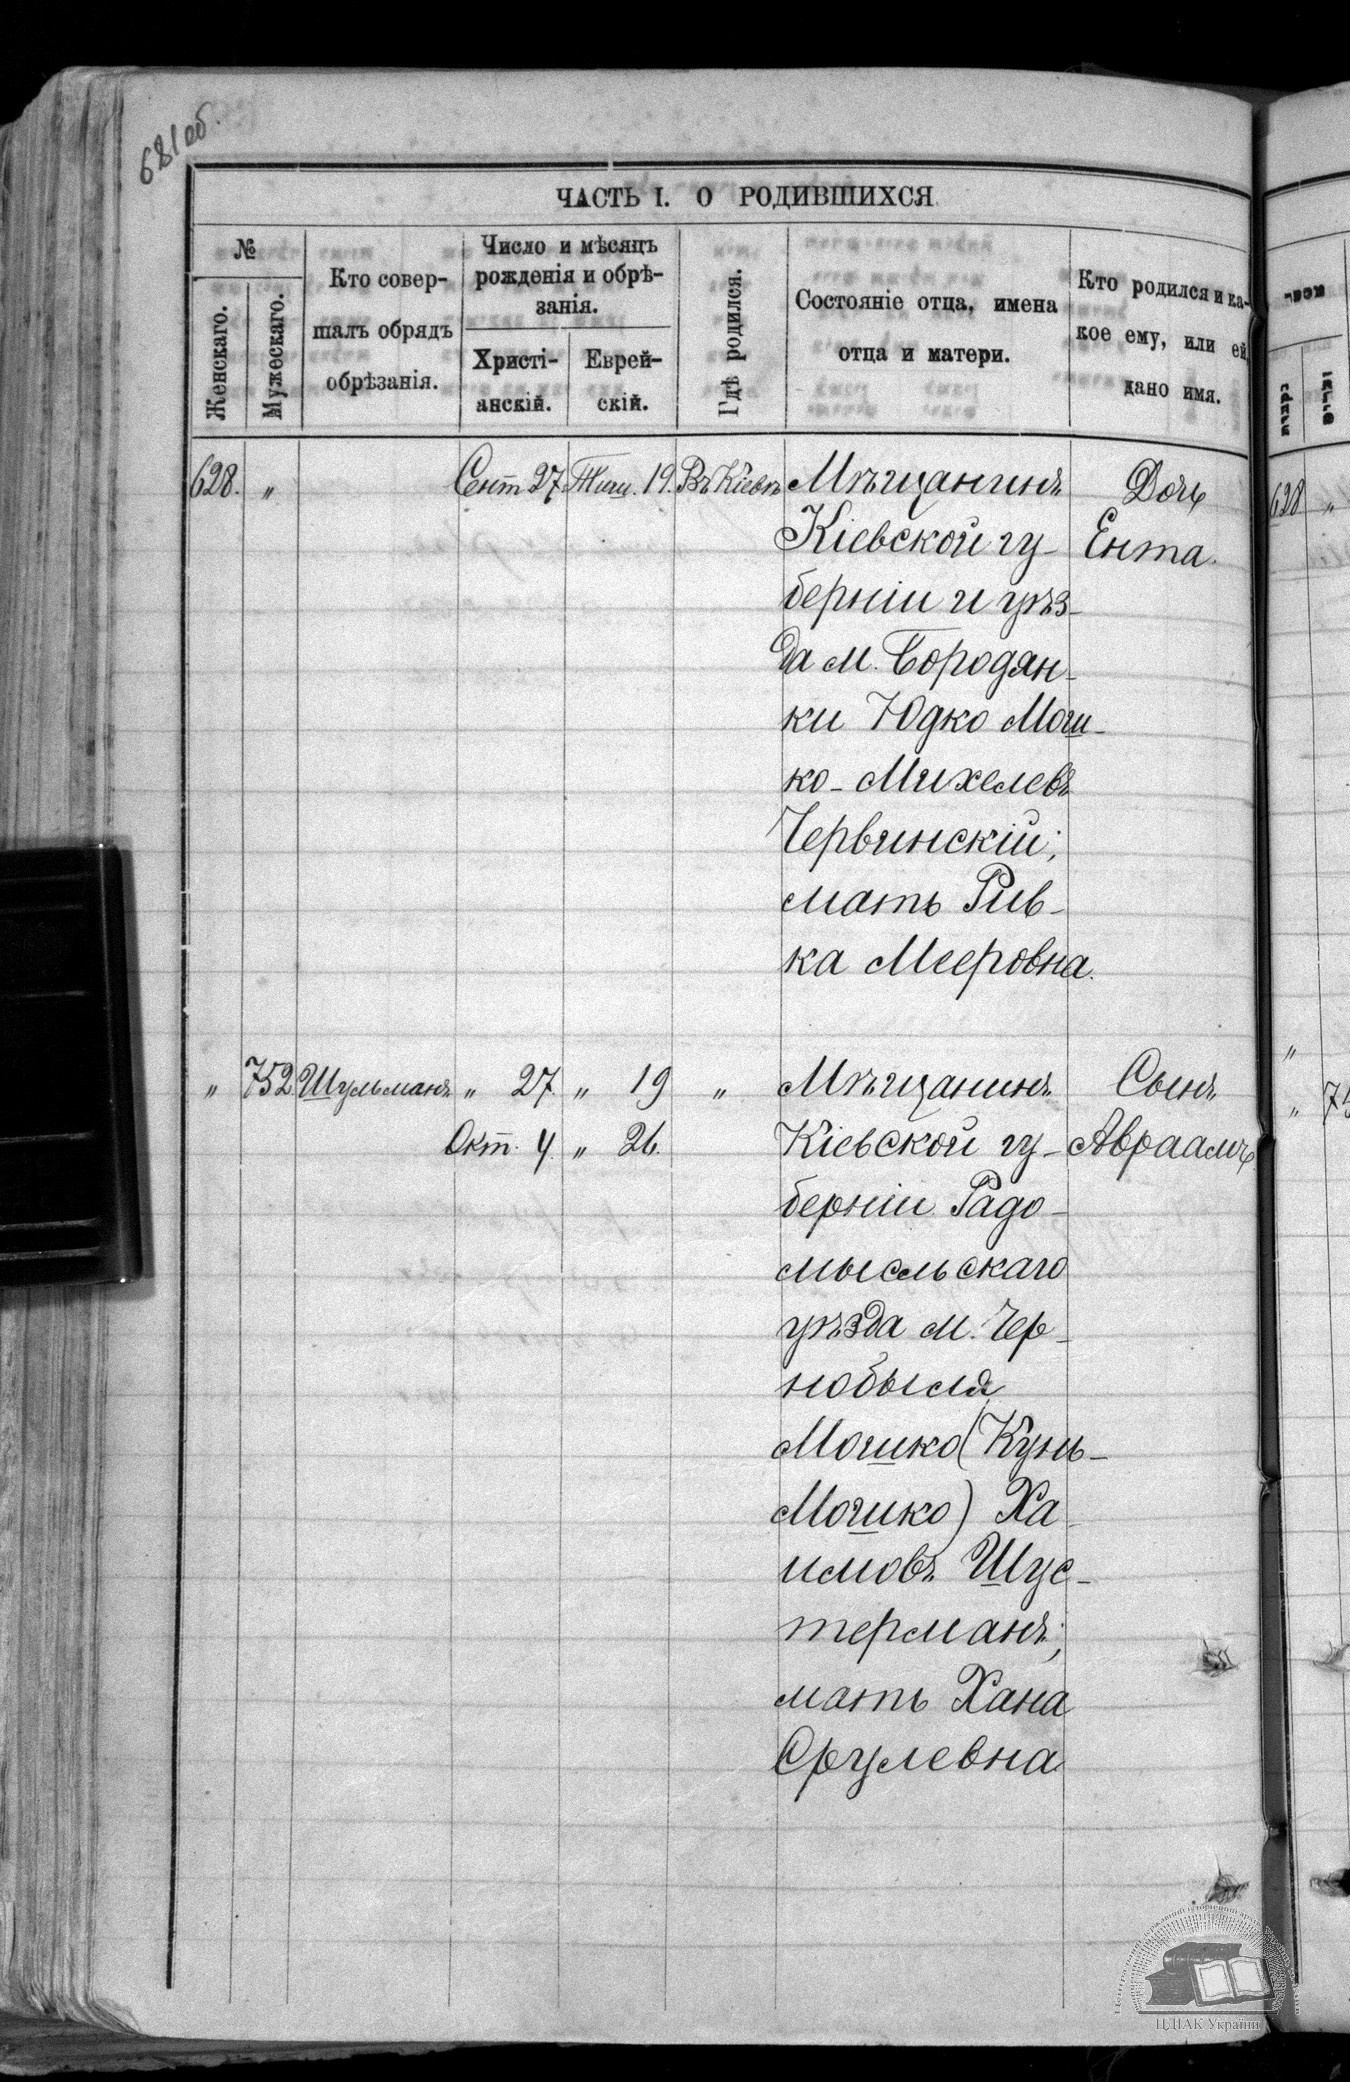 681 об.
ЧАСТЬ I. О РОДИВШИХСЯ
№
Женскаго.
Мужескаго.
Кто совер-
шалъ обрядъ
обрѣзанія.
Число и мѣсяцъ
рожденія и обрѣ-
занія.
Христі-
анскій.
Еврей-
скій.
Гдѣ родился.
Состояніе отца, имена
отца и матери.
Кто родился и ка-
кое ему, или ей,
дано имя.
628. " Сент 27 Тиш. 19. Въ Кіевѣ Мѣщанинъ Дочь
Кіевской гу- Ента.
берніи и уѣз-
да м. Бородян-
ки Юдко Мош-
ко-Михелевъ
Червинскій;
мать Рив-
ка Мееровна.
" 752 Шульманъ " 27. " 19 " Мѣщанинъ Сынъ
Окт. 4. " 26. Кіевской гу- Авраамъ
берніи Радо-
мысльскаго
уѣзда м. Чер-
нобыля
Мошко (Кунь-
Мошко) Ха-
имовъ Шус-
терманъ;
мать Хана
Срулевна
נקבות
זכרים
628 "
"
" 75
ЦДІАК України